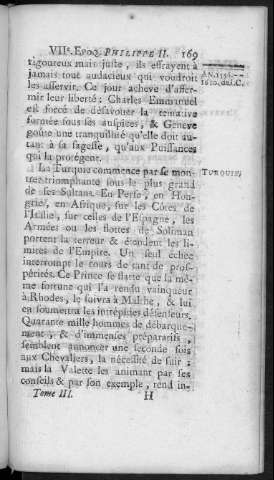 VIIe. EPOQ. PHILIPPE II. 169
rigoureux mais juste, ils effrayent à
jamais tout audacieux qui voudroit
les asservir. Ce jour acheve d'affer-
mir leur liberté; Charles Emmanuel
est forcé de désavouer la tentative
formée sous ses auspices, & Geneve
goûte une tranquillité qu'elle doit au-
tant à sa sagesse, qu'aux Puissances
qui la protégent.
AN. 1556.--
1610. de J. C.
La Turquie commence par se mon-
trer triomphante sous le plus grand
de ses Sultans. En Perse, en Hon-
grie, en Afrique, sur les Côtes de
l'Italie, sur celles de l'Espagne, les
Armées ou les flottes de Soliman
portent la terreur & étendent les li-
mites de l'Empire. Un seul échec
interrompt le cours de tant de prosp-
pérités. Ce Prince se flatte que la mê-
me fortune qui l'a rendu vainqueur
à Rhodes, le suivra à Malthe, & lui
en soumettra les intrépides défenseurs.
Quarante mille hommes de débarque-
ment, & d'immenses préparatifs,
semblent annoncer une seconde fois
aux Chevaliers, la nécessité de fuir;
mais la Valette les animant par ses
conseils & par son exemple, rend in-
TURQUIE.
Tome III. H